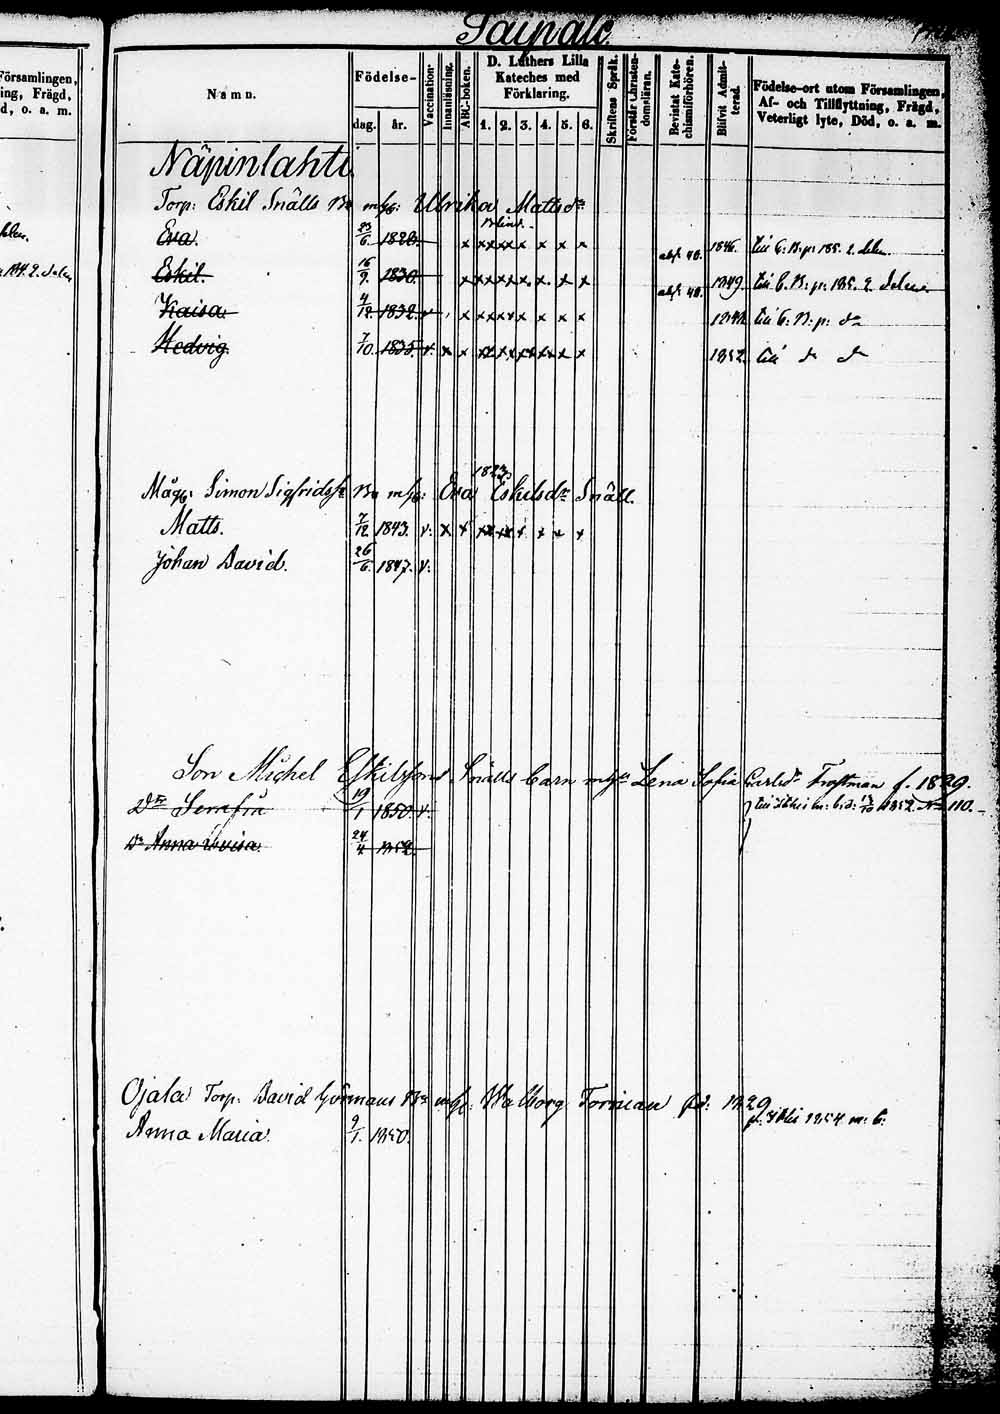 Saipale.
Församlingen,
ing, Frägd,
d, o. a. m.
Namn.
Födelse-
dag. år.
Vaccination.
Innanläsning.
ABC-boken.
D. Luthers Lilla
Kateches med
Förklaring.
1. 2. 3. 4. 5. 6.
Skriftens Språk.
Förstår Christen-
domsläran.
Bevistat Kate-
chismiförhören.
Blifvit Admit-
terad.
Födelse-ort utom Församlingen,
Af- och Tillflyttning, Frägd,
Veterligt lyte, Död, o. a. m.
Näpinlahti
Torp: Eskil Snälls Bn m/h: Ullrika Matts dr
Blind.
Eva. 23/6. 1828. x x x x x x x x 1846. till C: B: p: 185. 2. delen.
Eskil. 16/9. 1830. x x x x x x x x 1849. till C. B: p: 185. 2. delen.
Kaisa 4/12 1832. v x x x x x x x till C: B: p: do
Hedvig. 7/10. 1835. v. x x x x x x x x 1852. till do do
1823
Måg: Simon Sigfridss: Bn m/h: Eva Eskilsdr Snäll.
Matts. 7/12. 1843. v. x x x x x x x x
Johan David. 26/6. 1847. v.
Son Michel Eskilssons Snälls barn m/h Lena Sofia Carlsdr Troftman f. 1829.
Dr Serafia 19/1 1850. v. 1852. No 110.
Dr Anna Lovisa. 24/4 1852.
Ojala Torp. David Görmans Bn m/h: Walborg Torman fd: 1829
Anna Maria. 9/1. 1850. 1854 m: b: